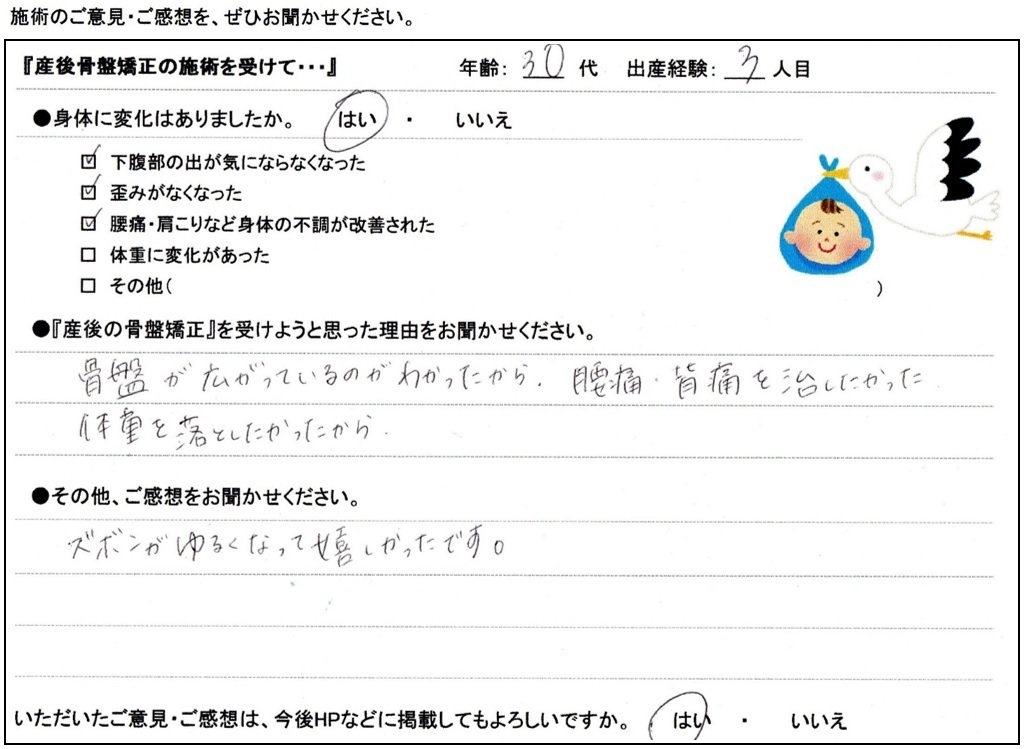 施術のご意見・ご感想を、ぜひお聞かせください。
『産後骨盤矯正の施術を受けて・・・』 年齢: 30 代 出産経験: 3 人目
●身体に変化はありましたか。 はい ・ いいえ
☑ 下腹部の出が気にならなくなった
☑ 歪みがなくなった
☑ 腰痛・肩こりなど身体の不調が改善された
□ 体重に変化があった
□ その他( )
●『産後の骨盤矯正』を受けようと思った理由をお聞かせください。
骨盤が広がっているのがわかったから. 腰痛・背痛を治したかった
体重を落としたかったから.
●その他、ご感想をお聞かせください。
ズボンがゆるくなって嬉しかったです。
いただいたご意見・ご感想は、今後HPなどに掲載してもよろしいですか。 はい ・ いいえ